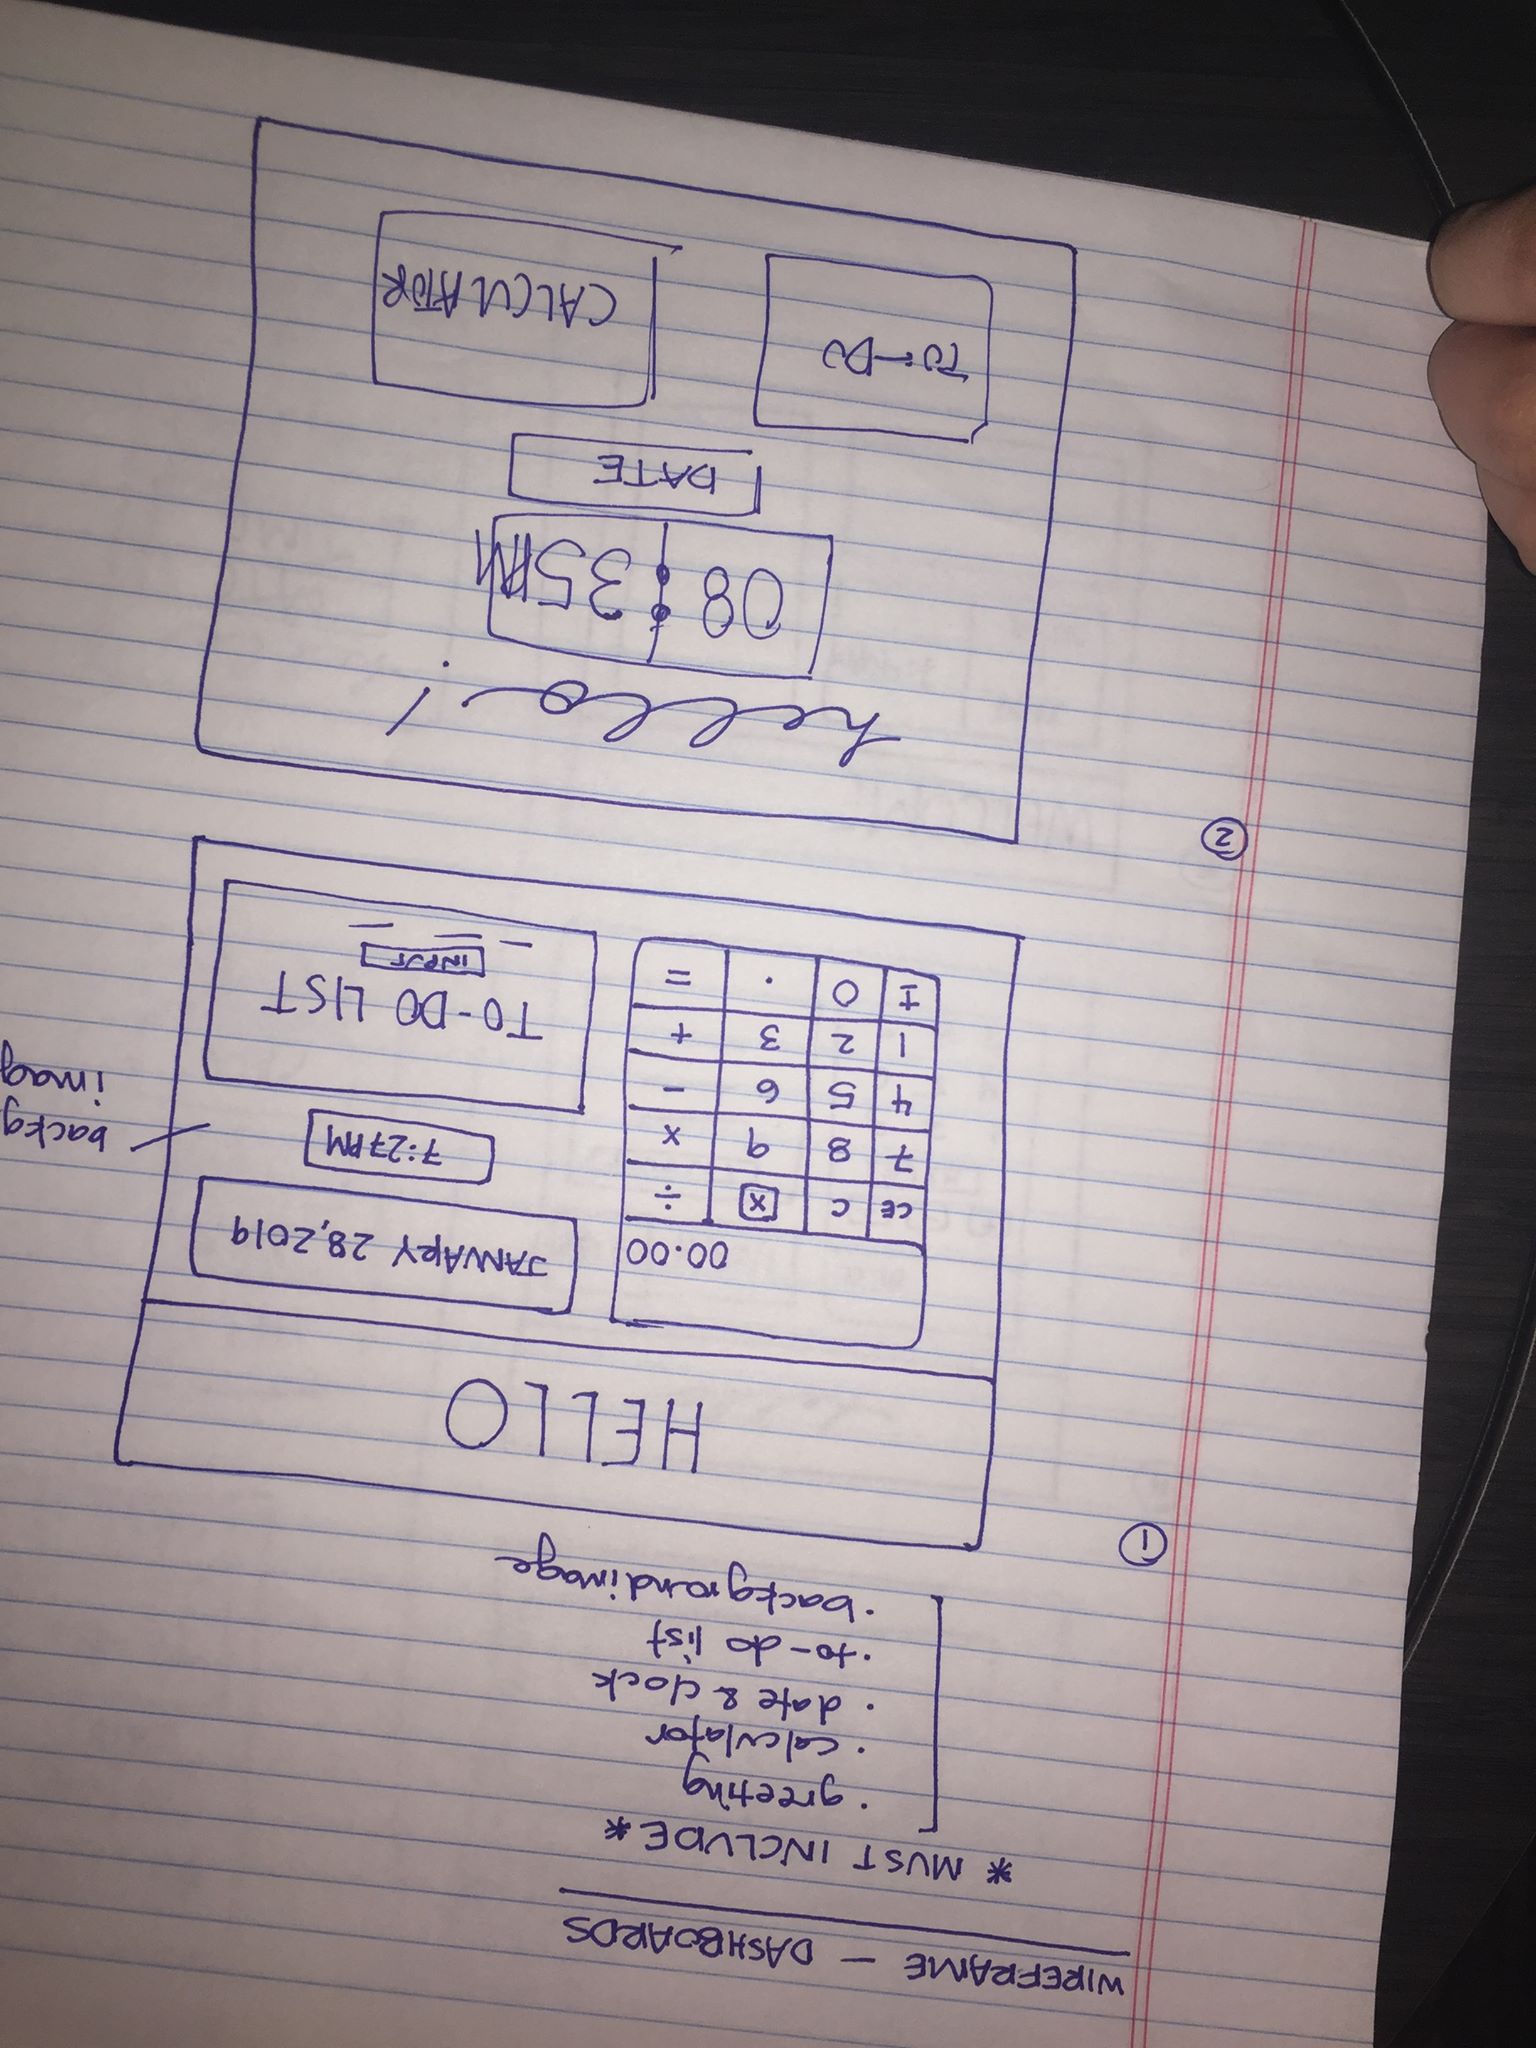 WIREFRAME — DASHBOARDS
* MUST INCLUDE *
· greeting
· calculator
· date & clock
· to-do list
· background image
①
HELLO
00.00
CE C x ÷
7 8 9 x
4 5 6 -
1 2 3 +
± 0 . =
JANUARY 28, 2019
7:27PM
backg
imag
TO-DO LIST
INPUT
②
hello!
08:35PM
DATE
TO-DO
CALCULATOR